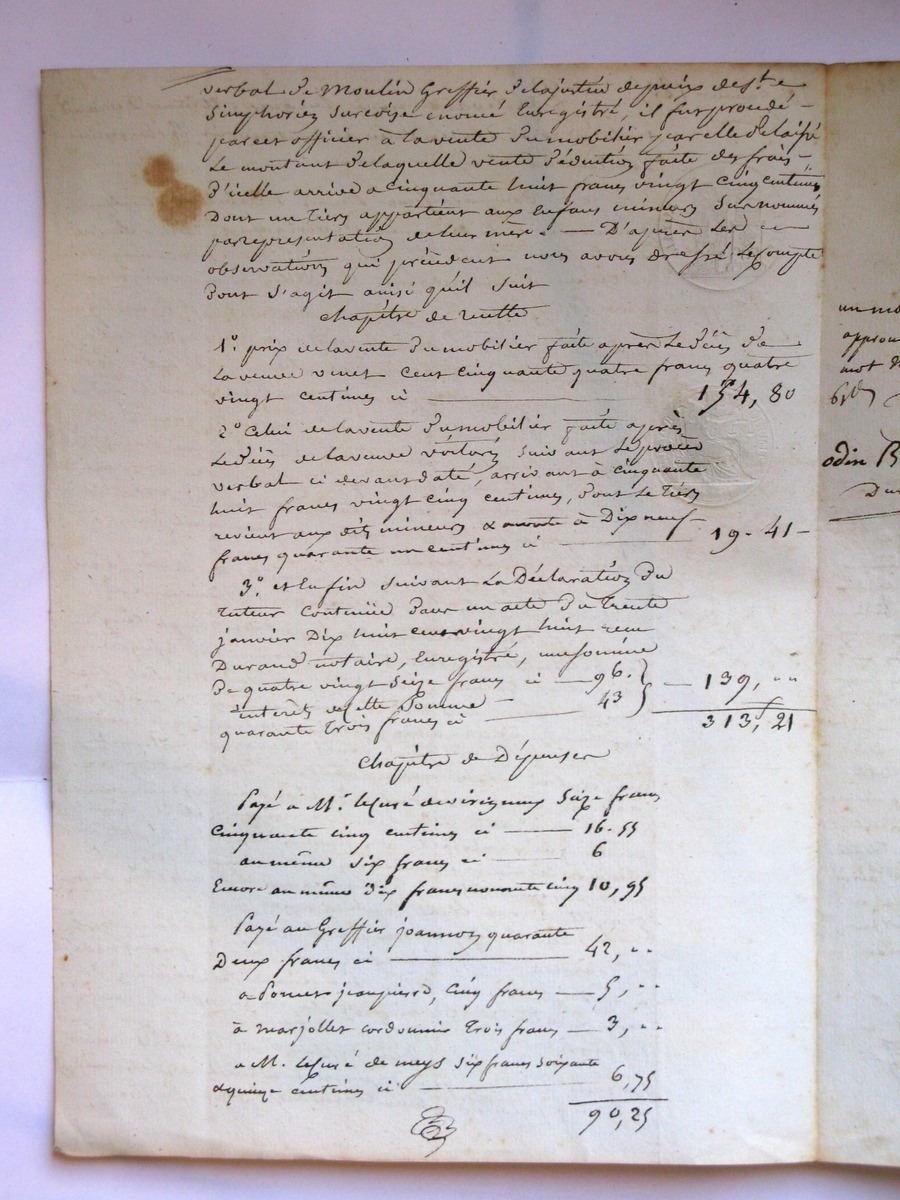 verbal de Moulin Greffier de la justice de paix de St e
Simphorien sur coize enoncé Enregistré, il fut procédé
par cet officier à la vente du mobilier par elle delaissé
Le montant de laquelle vente déduction faite des frais
d'icelle arrive a cinquante huit francs vingt cinq centimes
Dont un tiers appartient aux Enfans mineurs Surnommés
par représentation de leur mère. — D'après Les
observations qui précèdent nous avons dressé Le compte
Dont s'agit ainsi qu'il suit
chapitre de recette
1° prix de la vente du mobilier faite après Le décès de
La veuve vinet cent cinquante quatre francs quatre
vingt centimes ci — 154, 80
2° Celui de la vente du mobilier faite après
Le décès de la veuve suivant Le procès
verbal ci devant daté, arrivant à cinquante
huit francs vingt cinq centimes, dont Le tiers
revient aux dits mineurs & monte à Dix neuf
francs quarante un centimes ci — 19 - 41 -
3° et Enfin suivant La Déclaration du
tuteur contenüe dans un acte du trente
janvier Dix huit cent vingt huit recu
Durand notaire, Enregistré, une somme
De quatre vingt seize francs ci — 96. } — 139, ..
interêts de cette Somme —
quarante trois francs ci — 43
313, 21
Chapitre de Dépenses
Payé a Mr. le curé de seize francs
Cinquante cinq centimes ci — 16-55
au même six francs ci — 6
Encore au même dix francs nonante cinq 10, 95
Payé au Greffier joannon quarante
Deux francs ci — 42, ..
a jean pierre, Cinq francs — 5, ..
à marjollet cordonnier trois francs — 3, ..
a M. le curé de meys six francs soixante
& quinze centimes ci — 6,75
90,25
un mo
approu
mot
odin B
Du